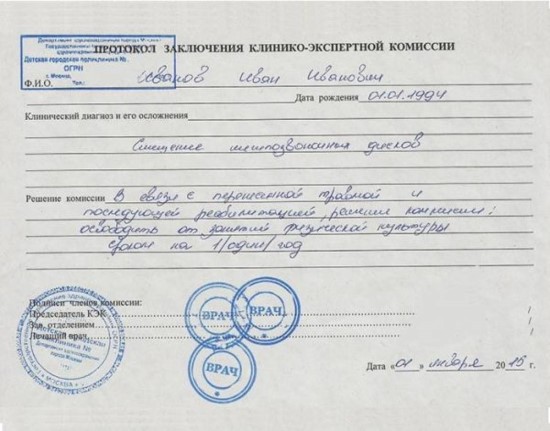 Детская городская поликлиника №
ОГРН
г. Москва, Тел.:
ПРОТОКОЛ ЗАКЛЮЧЕНИЯ КЛИНИКО-ЭКСПЕРТНОЙ КОМИССИИ
Ф.И.О. Иванов Иван Иванович
Дата рождения 01.01.1994
Клинический диагноз и его осложнения
Смещение межпозвоночных дисков
Решение комиссии В связи с перенесенной травмой и
последующей реабилитацией, решили комиссии:
освободить от занятий физической культуры
сроком на 1/один/год
Подписи членов комиссии:
Председатель КЭК
Зав. отделением
Лечащий врач
ВРАЧ
ВРАЧ
ВРАЧ
Дата «01» января 2015 г.